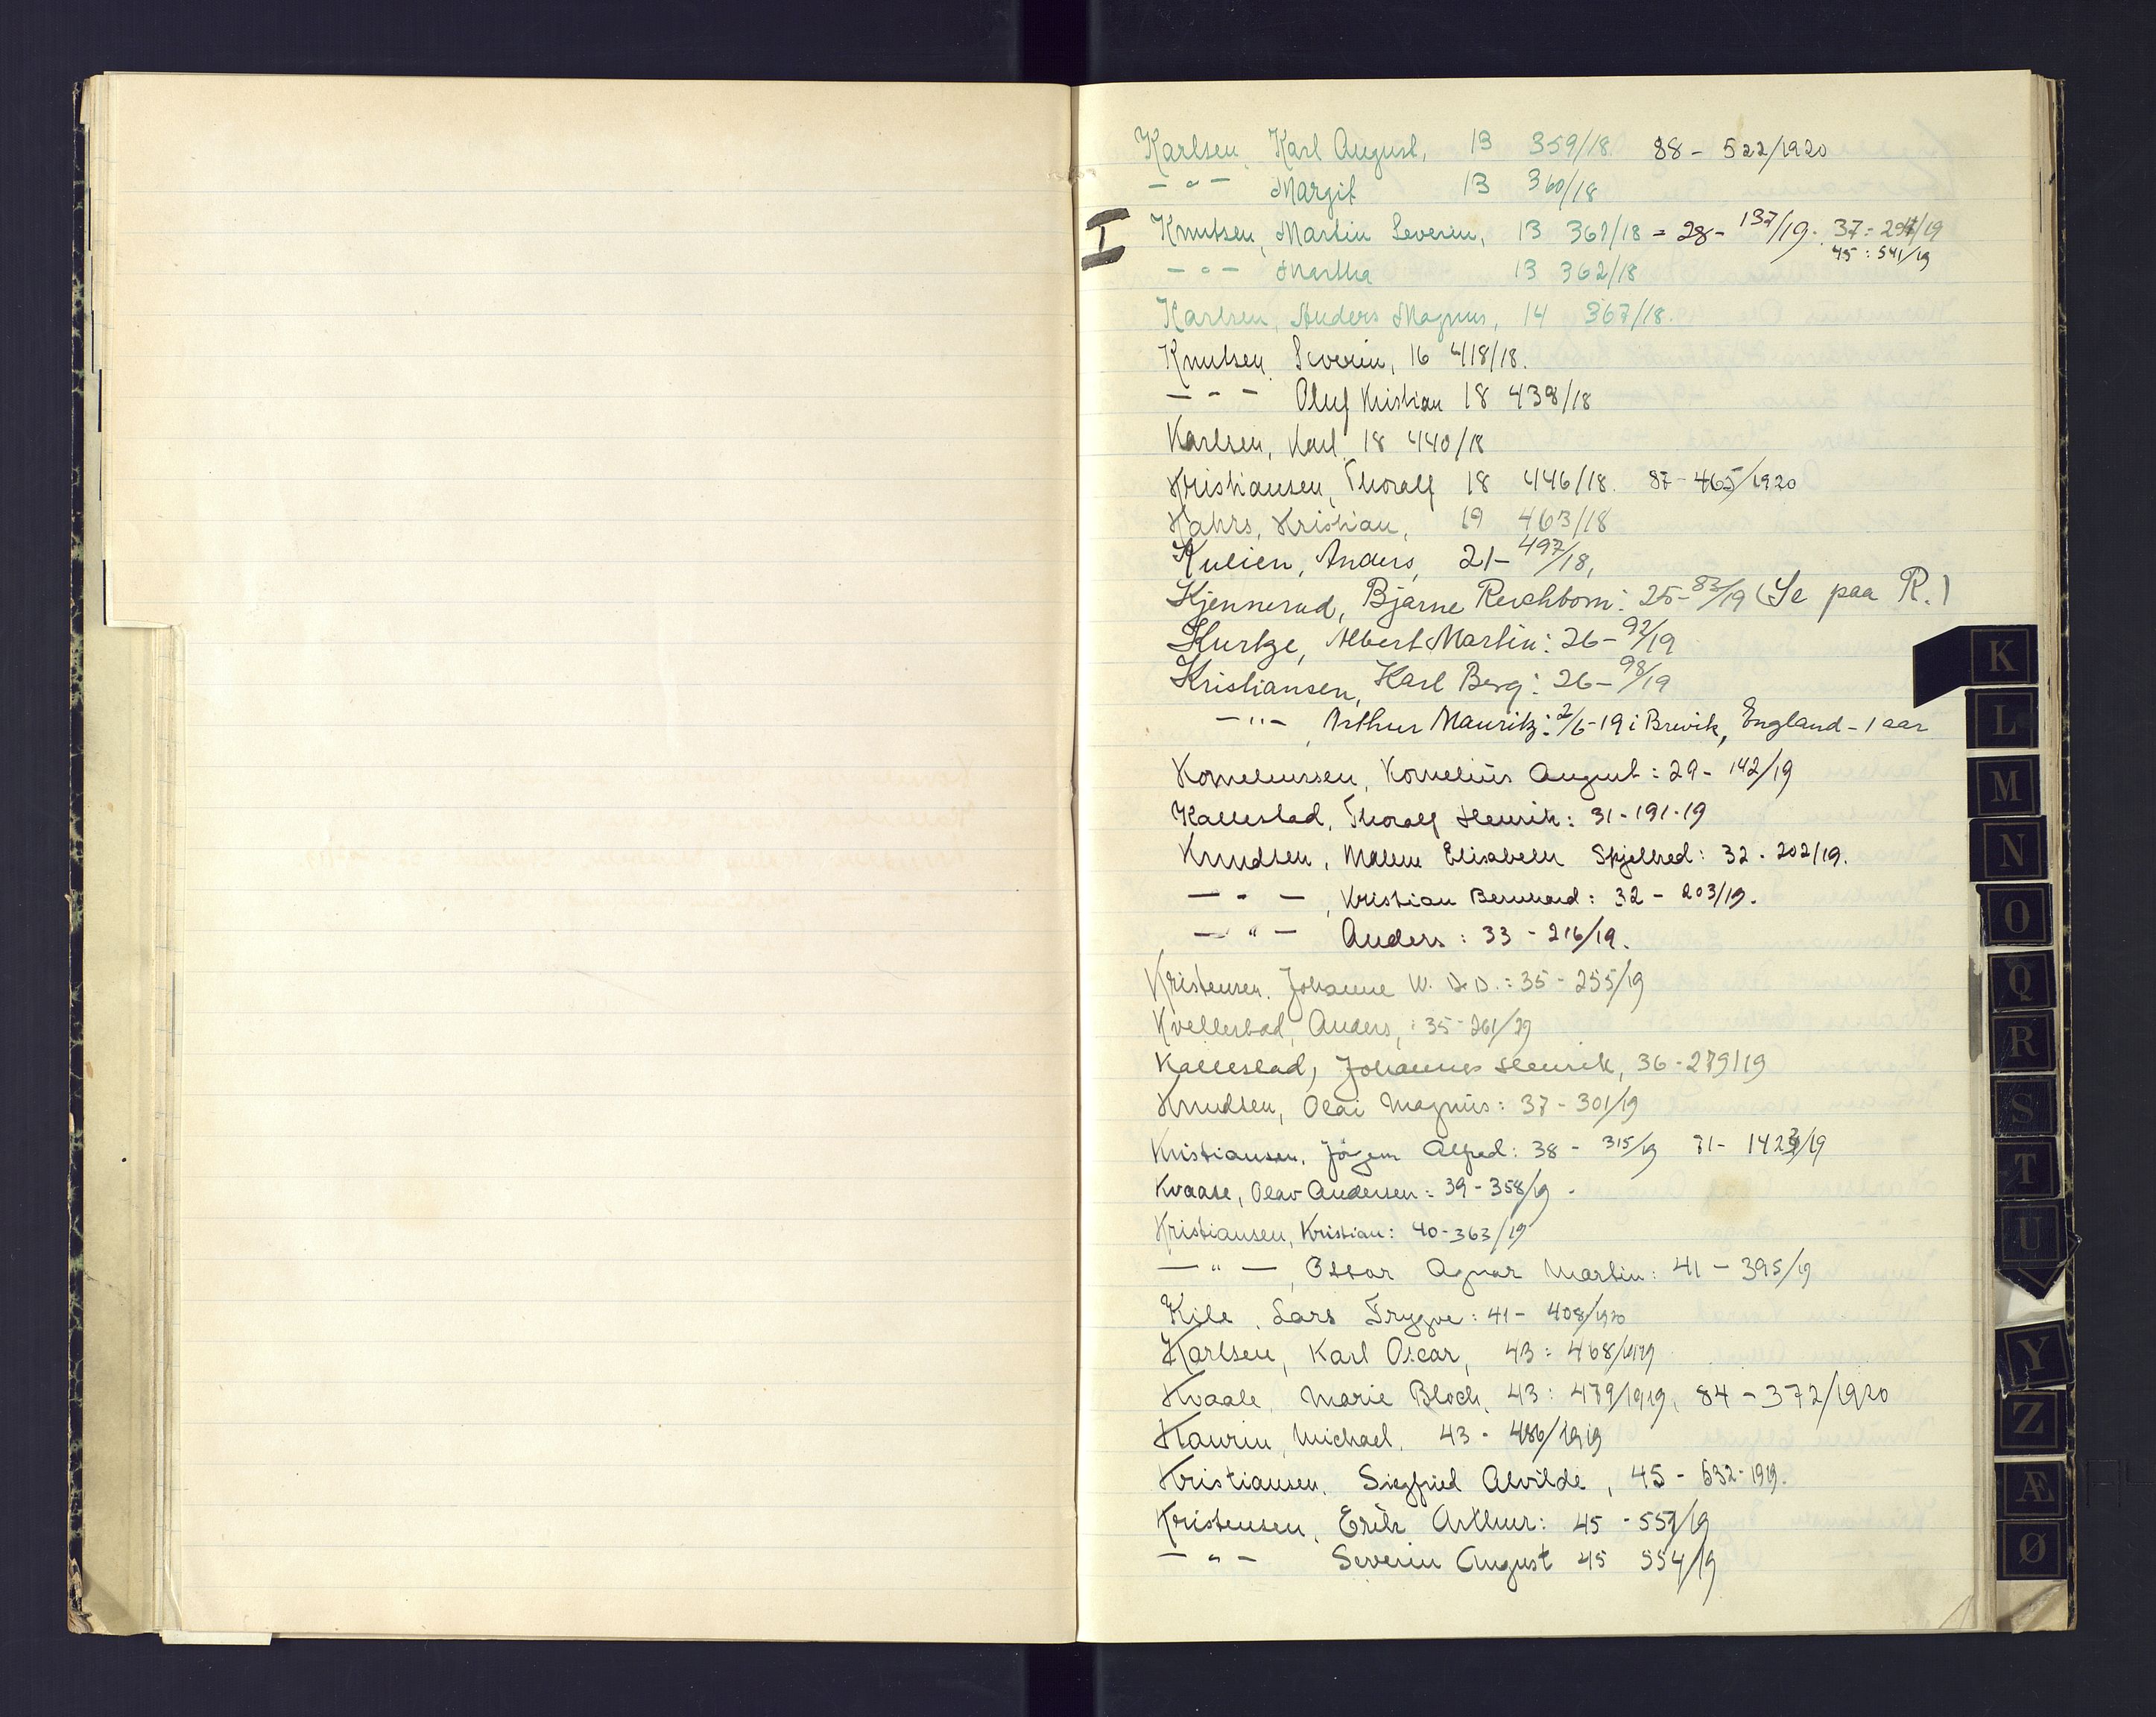 Karlsen, Karl August, 13 359/18. 88 - 522/1920
- " - Margit 13 360/18
I Knutsen, Martin Severin, 13 361/18 = 28 - 137/19. 37 = 297/19
45 : 541/19
- " - Martha 13 362/18
Karlsen, Anders Magnus, 14 367/18.
Knutsen, Severin, 16 418/18.
- " - Oluf Kristian 18 439/18
Karlsen, Karl 18 440/18
Kristiansen, Thoralf 18 446/18. 87 - 465/1920
Kahrs, Kristian, 19 463/18
Kulien, Anders, 21 - 497/18,
Kjennerud, Bjarne : 25 - 83/19 (Se paa R.)
Kurtze, Albert Martin : 26 - 92/19
Kristiansen, Karl Berg : 26 - 98/19
- " - , Arthur Mauritz : 2/6 - 19 i Brevik, England - 1 aar
Korneliussen, Kornelius August : 29 - 142/19
Kallestad, Thoralf Henrik : 31 - 191 - 19
Knudsen, Malene Elisabeth : 32 - 202/19.
- " - , Kristian Bernhard : 32 - 203/19.
- " - Anders : 33 - 216/19.
Kristensen, Johanne W. : 35 - 255/19
Kvellestad, Anders, : 35 - 261/19
Kallestad, Johannes Henrik, 36 - 279/19
Knudsen, Olai Magnus : 37 - 301/19
Kristiansen, Jörgen Alfred : 38 - 315/19 71 - 1423/19
Kvaase, Olav Andersen : 39 - 358/19.
Kristiansen, Kristian : 40 - 363/19
- " - , Ossar Agnar Martin : 41 - 395/19
Kile, Lars Trygve : 41 - 408/1920
Karlsen, Karl Oscar, 43 : 468/1919
Kvaale, Marie Bloch, 43 : 479/1919, 84 - 372/1920
Kaurin, Michael, 43 - 486/1919
Kristiansen, Siegfried Alvilde, 45 - 532 - 1919.
Kristensen, Erik Arthur : 45 - 557/19
- " - Severin August 45 554/19
K
L
M
N
O
Q
R
S
T
U
Y
Z
Æ
Ø